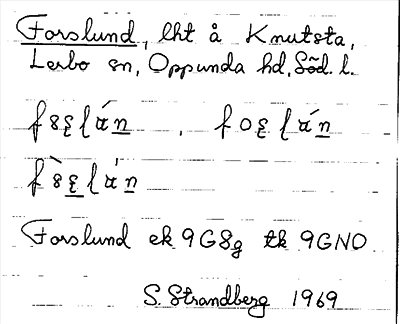 Forslund, lht å Knutsta,
Lerbo sn, Oppunda hd, Söd. l.
Forslund ek 9G8g tk 9GNO
S. Strandberg 1969